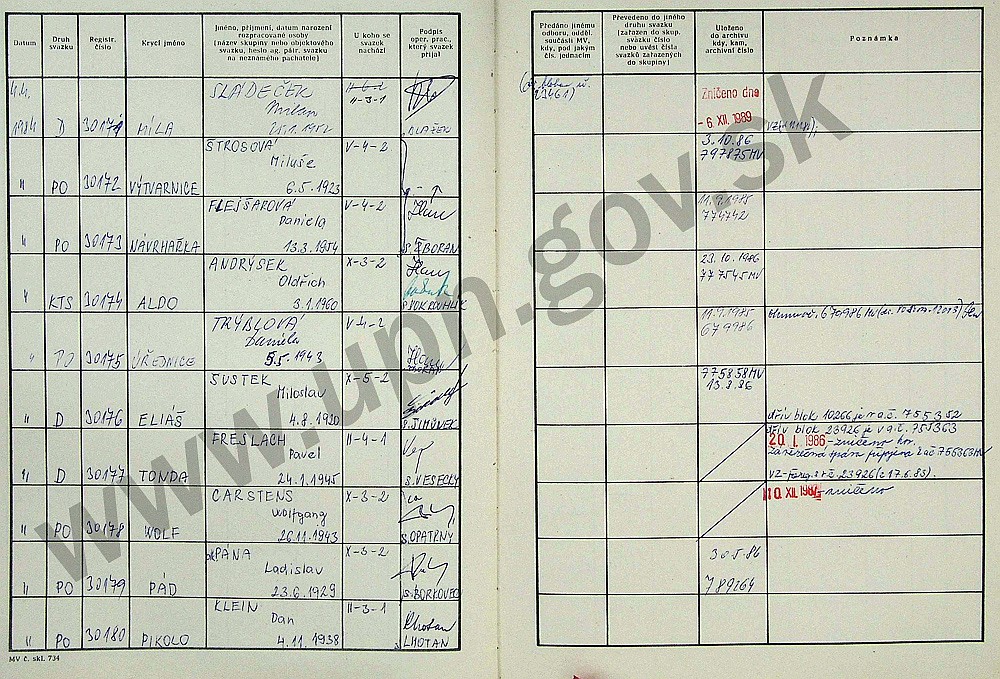 Datum
Druh svazku
Registr. číslo
Krycí jméno
Jméno, příjmení, datum narození
rozpracované osoby
(název skupiny nebo objektového
svazku, heslo ag. pátr. svazku
na neznámého pachatele)
U koho se
svazek
nachází
Podpis
oper. prac.,
který svazek
přijal
Předáno jinému
odboru, odděl.
součásti MV,
kdy, pod jakým
čís. jednacím
Převedeno do jiného
druhu svazku
(zařazen do skup.
svazku číslo
nebo uvést čísla
svazků zařazených
do skupiny)
Uloženo
do archivu
kdy, kam,
archivní číslo
Poznámka
4.4.
1984 D 30171 MÍLA
SLÁDEČEK
Milan
II-3-1
BLAŽEK
Zničeno dne
- 6. XII. 1989
" PO 30172 VÝTVARNICE
ŠTROSOVÁ
Miluše
6.5.1923
V-4-2
3.10.86
797875MV
" PO 30173 NÁVRHAŘKA
FLEJŠAROVÁ
Daniela
13.3.1954
V-4-2
11.9.1985
774742
" KTS 30174 ALDO
ANDRÝSEK
Oldřich
3.1.1960
X-3-2
23.10.1986
777545MV
" PO 30175 ÚŘEDNICE
TRÝBLOVÁ
Daniela
5.5.1943
V-4-2
11.9.1985
679986
" D 30176 ELIÁŠ
ŠUSTEK
Miloslav
4.8.1920
X-5-2
P. ŠIMŮNEK
775858MV
13.8.86
dřív blok 10266 je v a.č. 755352
" D 30177 TONDA
FREJLACH
Pavel
24.1.1945
II-4-1
S. VESECKÝ
dřív blok 23926 je v a.č. 755363
20. I. 1986 - zničeno
" PO 30178 WOLF
CARSTENS
Wolfgang
26.11.1943
X-3-2
S. OPATRNÝ
10. XII. 1987 - zničeno
" PO 30179 PÁD
PÁNA
Ladislav
23.6.1929
X-3-2
S. BORKOVEC
30.5.86
789264
" PO 30180 PIKOLO
KLEIN
Dan
4.11.1938
II-3-1
LHOTAN
MV č. skl. 734
www.upn.gov.sk